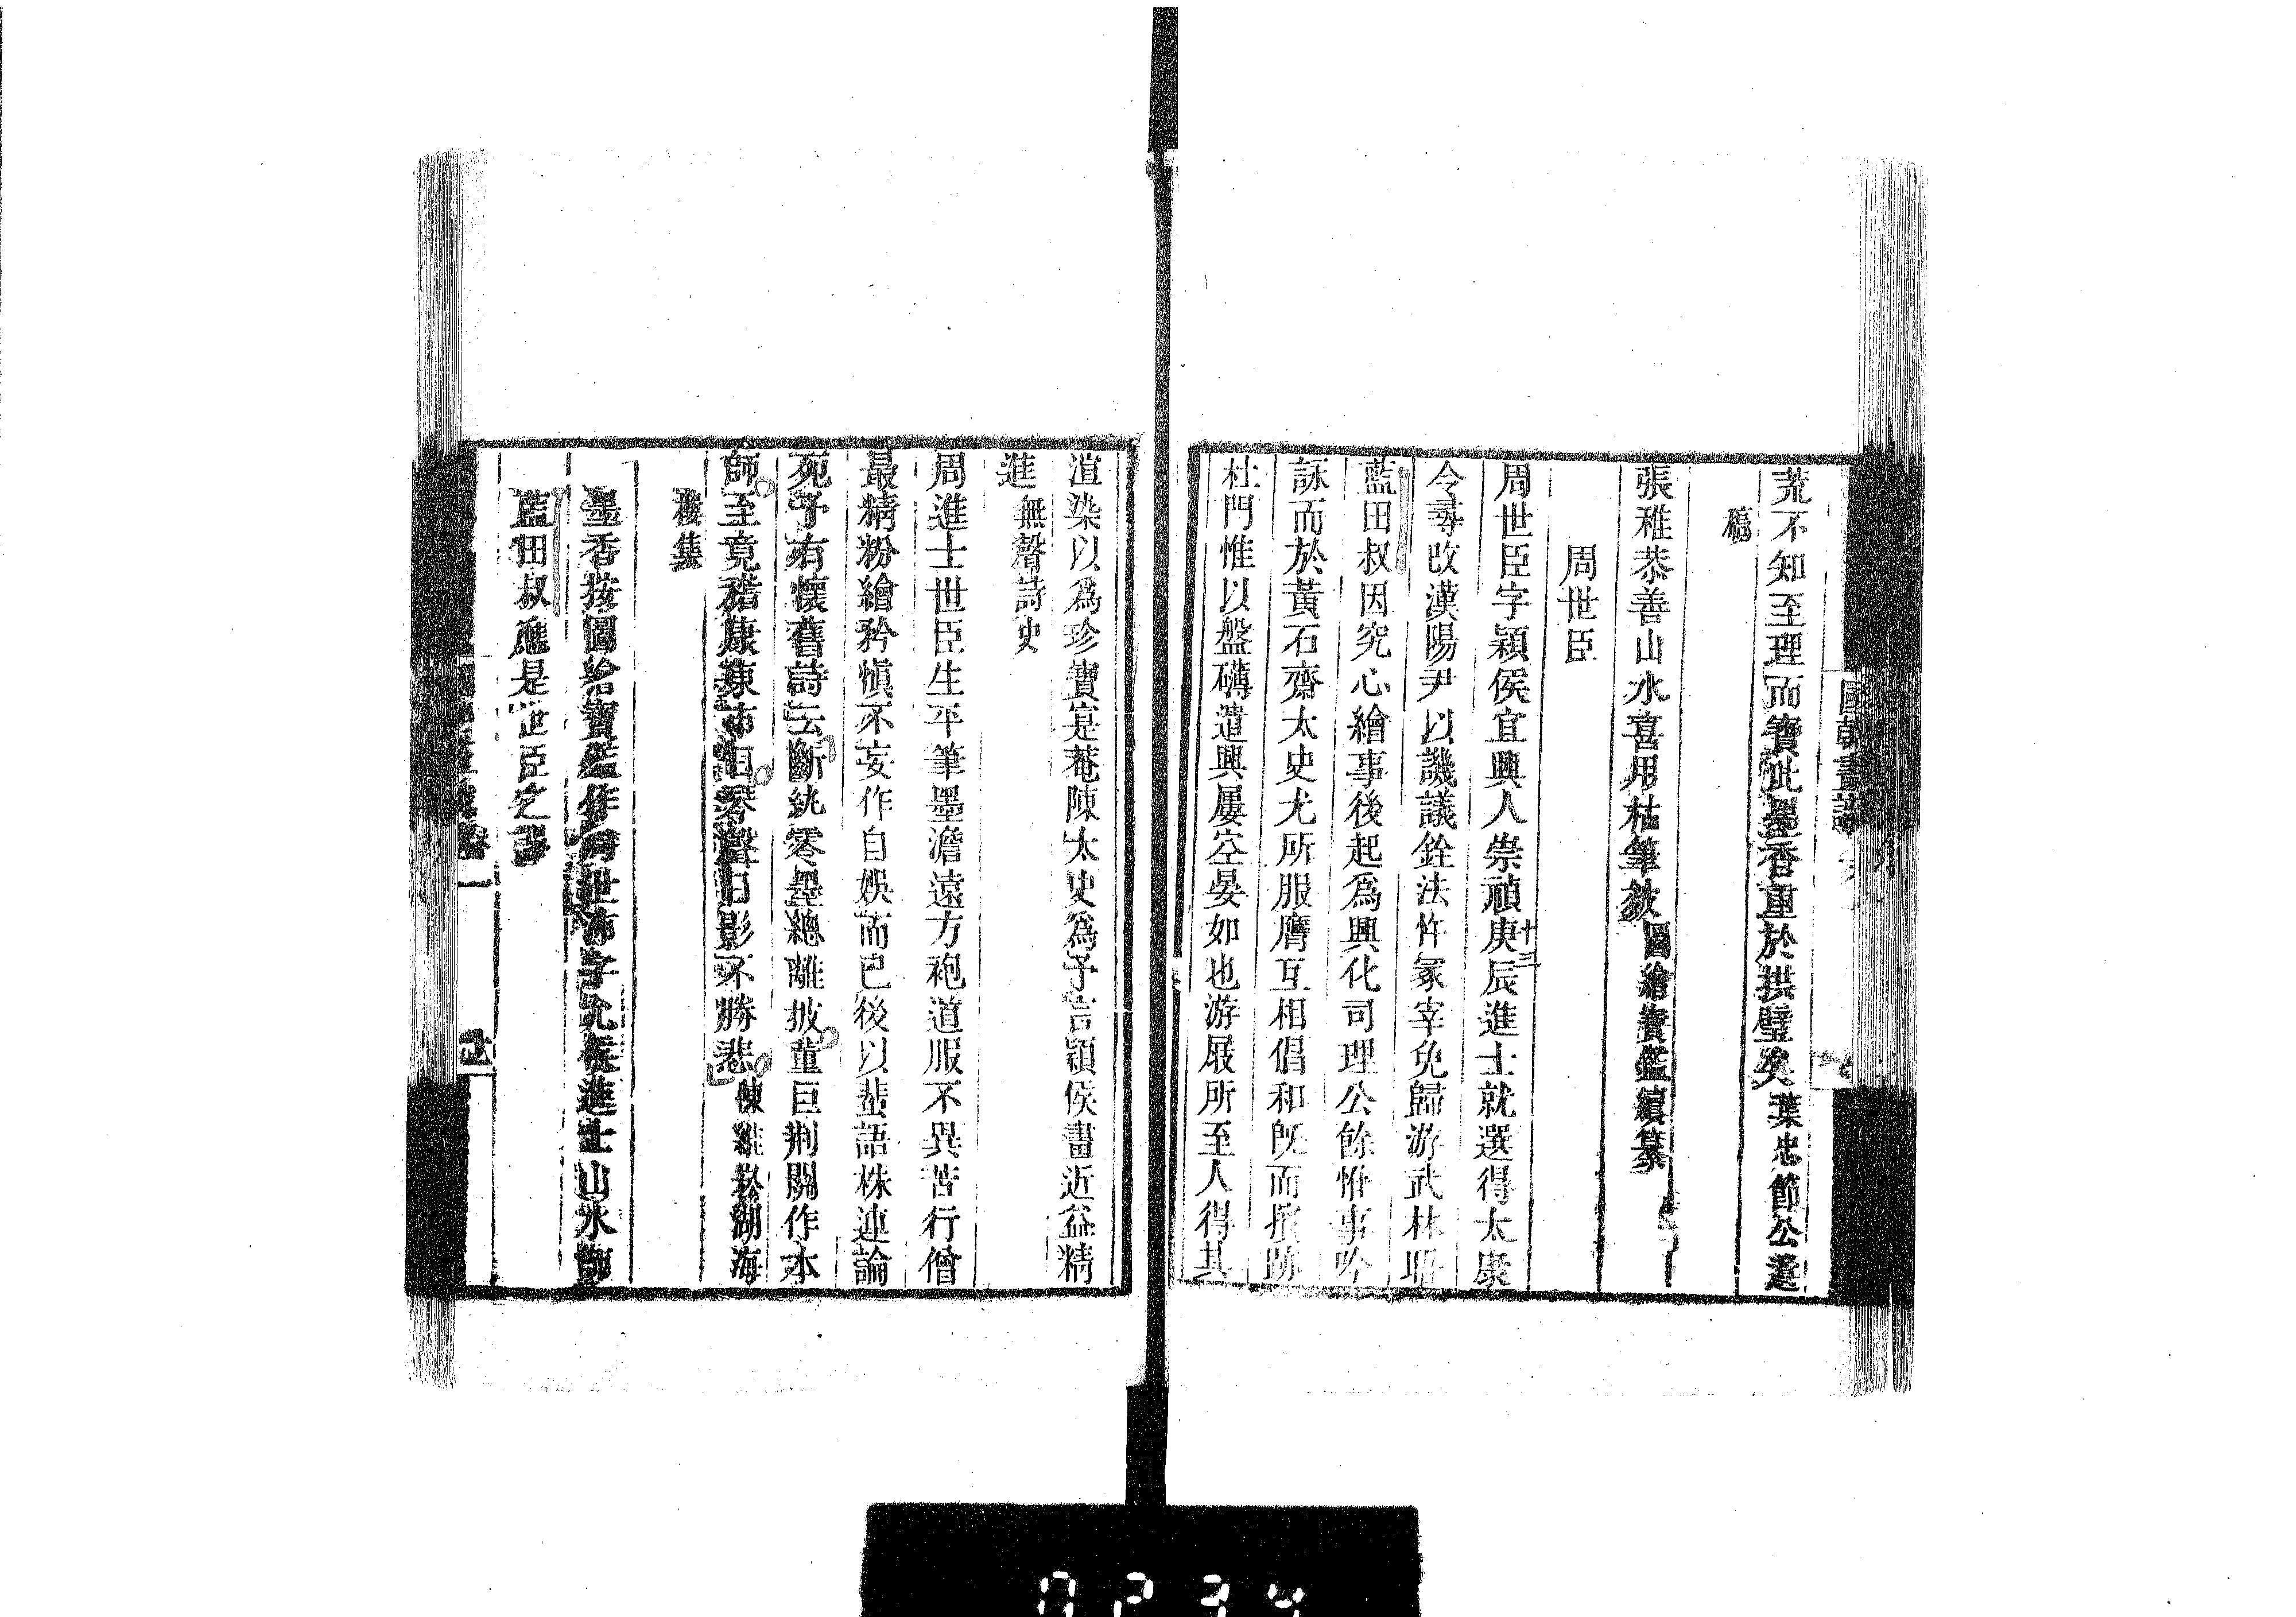 荒不知至理而寶此墨香重於拱璧矣葉忠節公遺
稿
張稚恭善山水喜用枯筆㪇圖繪寶鑑續纂
周世臣
周世臣字穎侯宜興人崇禎庚辰進士就選得太康
十三
令尋改漢陽尹以譏議銓法忤冢宰免歸游武林
藍田叔因究心繪事後起爲興化司理公餘惟事吟
詠而於黃石齋太史尤所服膺互相倡和旣而擯跡
杜門惟以盤礴遣興屢空晏如也游屐所至人得其
渲染以爲珍寶寔菴陳太史爲予言穎侯畫近益精
進無聲詩史
周進士世臣生平筆墨澹遠方袍道服不異苦行僧
最精粉繪矜愼不妄作自娛而已後以蜚語株連論
死予有懷舊詩云斷紈零墨總離披董巨荆關作本
師至竟嵇康東市日琴聲日影不勝悲陳維崧湖海
樓集
墨香按圖繪寶鑑作周世沛字允侯進士山水師
藍田叔應是世臣之譌
國朝畫識